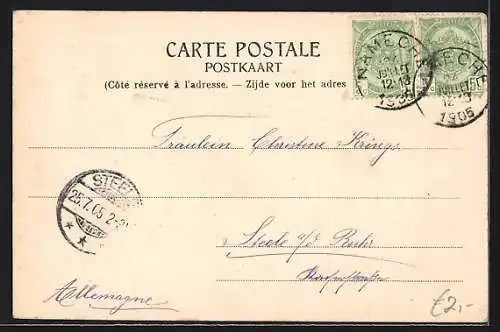 CARTE POSTALE
POSTKAART
(Côté réservé à l'adresse. — Zijde voor het adres
NAMECHE
JUILLET
12-13
1905
NAMECHE
JUILLET
12-13
1905
Fräulein Christine Krings
STEELE
25.7.05 2-3
Steele a/d Ruhr
Allemagne
£2,-